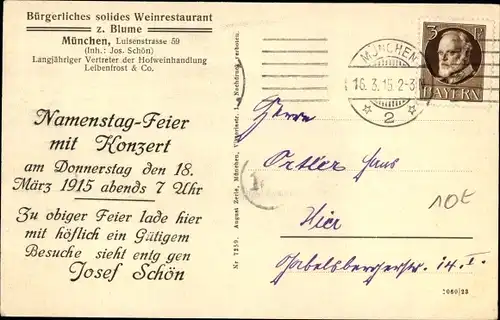 Bürgerliches solides Weinrestaurant
z. Blume
München, Luisenstrasse 59
(Inh.: Jos. Schön)
Langjähriger Vertreter der Hofweinhandlung
Leibenfrost & Co.
Namenstag-Feier
mit Konzert
am Donnerstag den 18.
März 1915 abends 7 Uhr
Zu obiger Feier lade hier
mit höflich ein Gütigem
Besuche sieht entg gen
Josef Schön
Nr 7259. August Zerle, München, Nachdruck verboten.
MÜNCHEN
16.3.15.2-3
2
3 Pf
BAYERN
Herrn
Ortler Hans
Hier
Gabelsbergerstr. 14. I.
10€